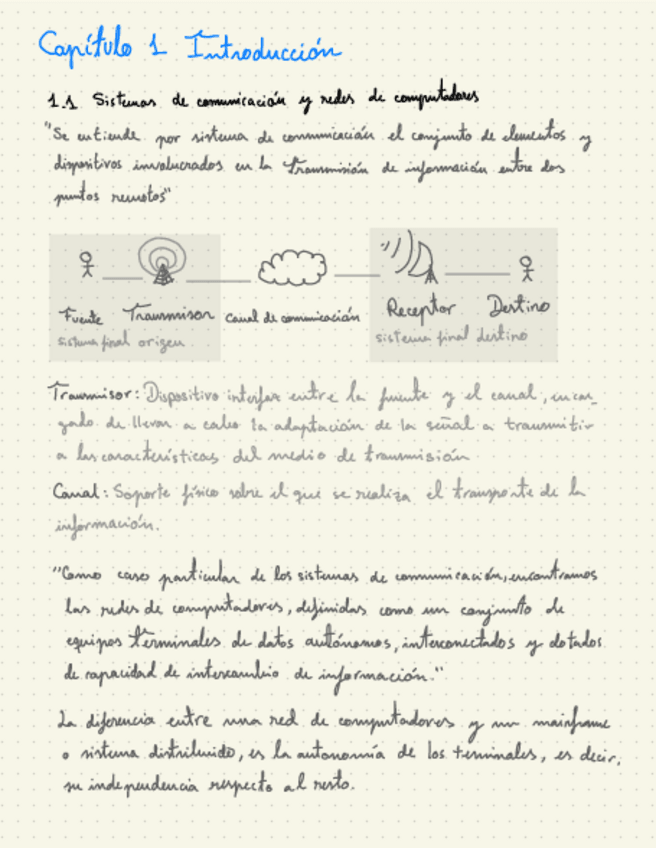 Capítulo 1 Introducción
1.1 Sistemas de comunicación y redes de computadores
"Se entiende por sistema de comunicación el conjunto de elementos y
dispositivos involucrados en la transmisión de información entre dos
puntos remotos"
Fuente Transmisor canal de comunicación Receptor Destino
sistema final origen sistema final destino
Transmisor: Dispositivo interfaz entre la fuente y el canal, encar_
gado de llevar a cabo la adaptación de la señal a transmitir
a las características del medio de transmisión
Canal: Soporte físico sobre el que se realiza el transporte de la
información.
"Como caso particular de los sistemas de comunicación, encontramos
las redes de computadores, definidas como un conjunto de
equipos terminales de datos autónomos, interconectados y dotados
de capacidad de intercambio de información."
La diferencia entre una red de computadores y un mainframe
o sistema distribuido, es la autonomía de los terminales, es decir,
su independencia respecto al resto.